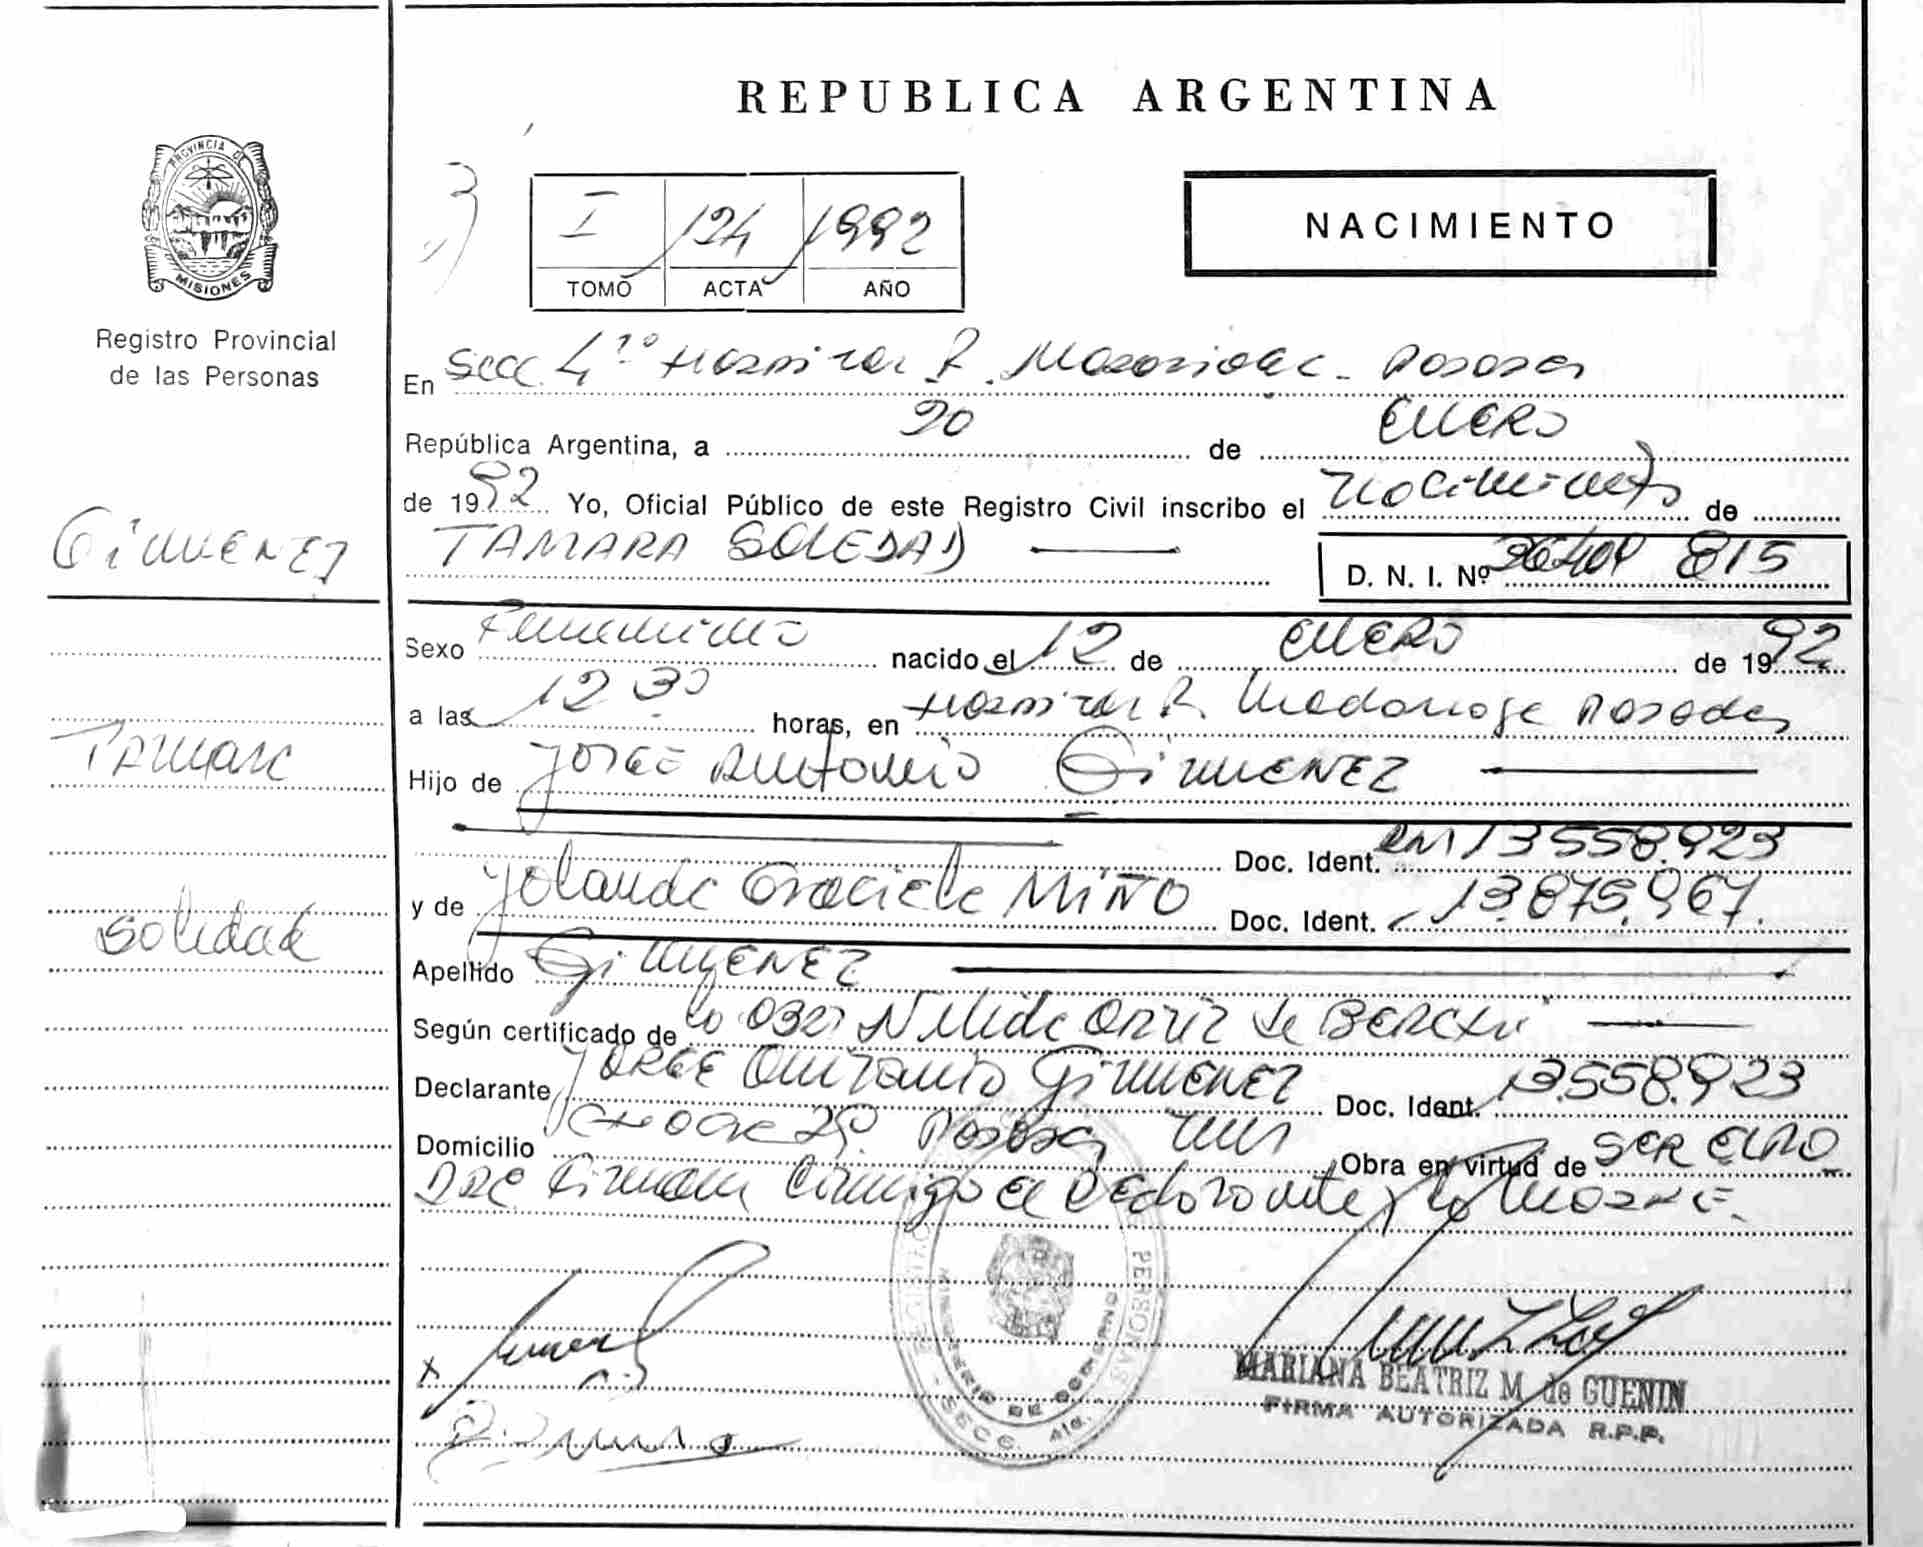 REPUBLICA ARGENTINA
PROVINCIA DE
MISIONES
Registro Provincial
de las Personas
I 124 1992
TOMO ACTA AÑO
NACIMIENTO
En Secc 4º Hospital R. Madariaga - Posadas
República Argentina, a 20 de ENERO
de 1992 Yo, Oficial Público de este Registro Civil inscribo el Nacimiento de
GIMENEZ
TAMARA SOLEDAD
D. N. I. Nº 815
Sexo Femenino nacido el 12 de ENERO de 1992
a las 12 30 horas, en Hospital R. Madariaga Posadas
Tamara
Hijo de JORGE Antonio GIMENEZ
Doc. Ident. DNI 13558.923
y de Yolanda Graciela MIÑO Doc. Ident. 13.875.967.
Soledad
Apellido GIMENEZ
Según certificado de la Obst Nélida Ortiz de
Declarante JORGE Antonio GIMENEZ Doc. Ident. 13.558.923
Domicilio Posadas Mns Obra en virtud de SER EL PA
DRE Firman Conmigo el Declarante y la MADRE.
MINISTERIO DE GOBIERNO
SECC. 4ta.
MARIANA BEATRIZ M. de GUENIN
FIRMA AUTORIZADA R.P.P.